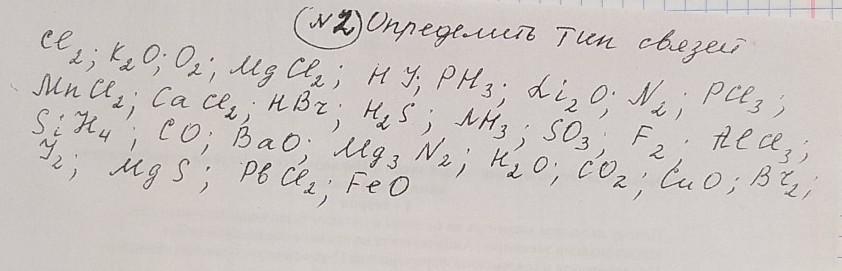 №2 Определить тип связей
Cl₂; K₂O; O₂; MgCl₂; HJ; PH₃; Li₂O; N₂; PCl₃;
MnCl₂; CaCl₂; HBr; H₂S; NH₃; SO₃; F₂; AlCl₃;
SiH₄; CO; BaO; Mg₃N₂; H₂O; CO₂; CuO; Br₂;
J₂; MgS; PbCl₂; FeO